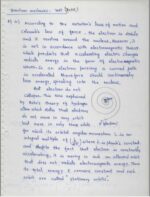 Quantum mechanics - UNIT (ONE)
According to the Newton's laws of motion and
Coulomb's law of force, the electron is stable
and it revolves around the nucleus. However, it
is not in accordance with electromagnetic theory
which predicts that accelerating electric charges
radiate energy in the form of electromagnetic
waves. So an electron pursuing a curved path
is accelerated therefore should continuously
lose energy, spiraling into the nucleus.
But electron do not
collapse. This was explained
by Bohr's theory of hydrogen
atom which states that electrons
do not move in any orbit
but move in only those orbits
for which its orbital angular momentum L is an
integral multiple of
and despite the fact that electron is constantly
accelerating, it is moving in such an allowed orbit
that does not radiate electromagnetic energy. Thus
its total energy E remains constant and such
orbit are called "stationary orbits".